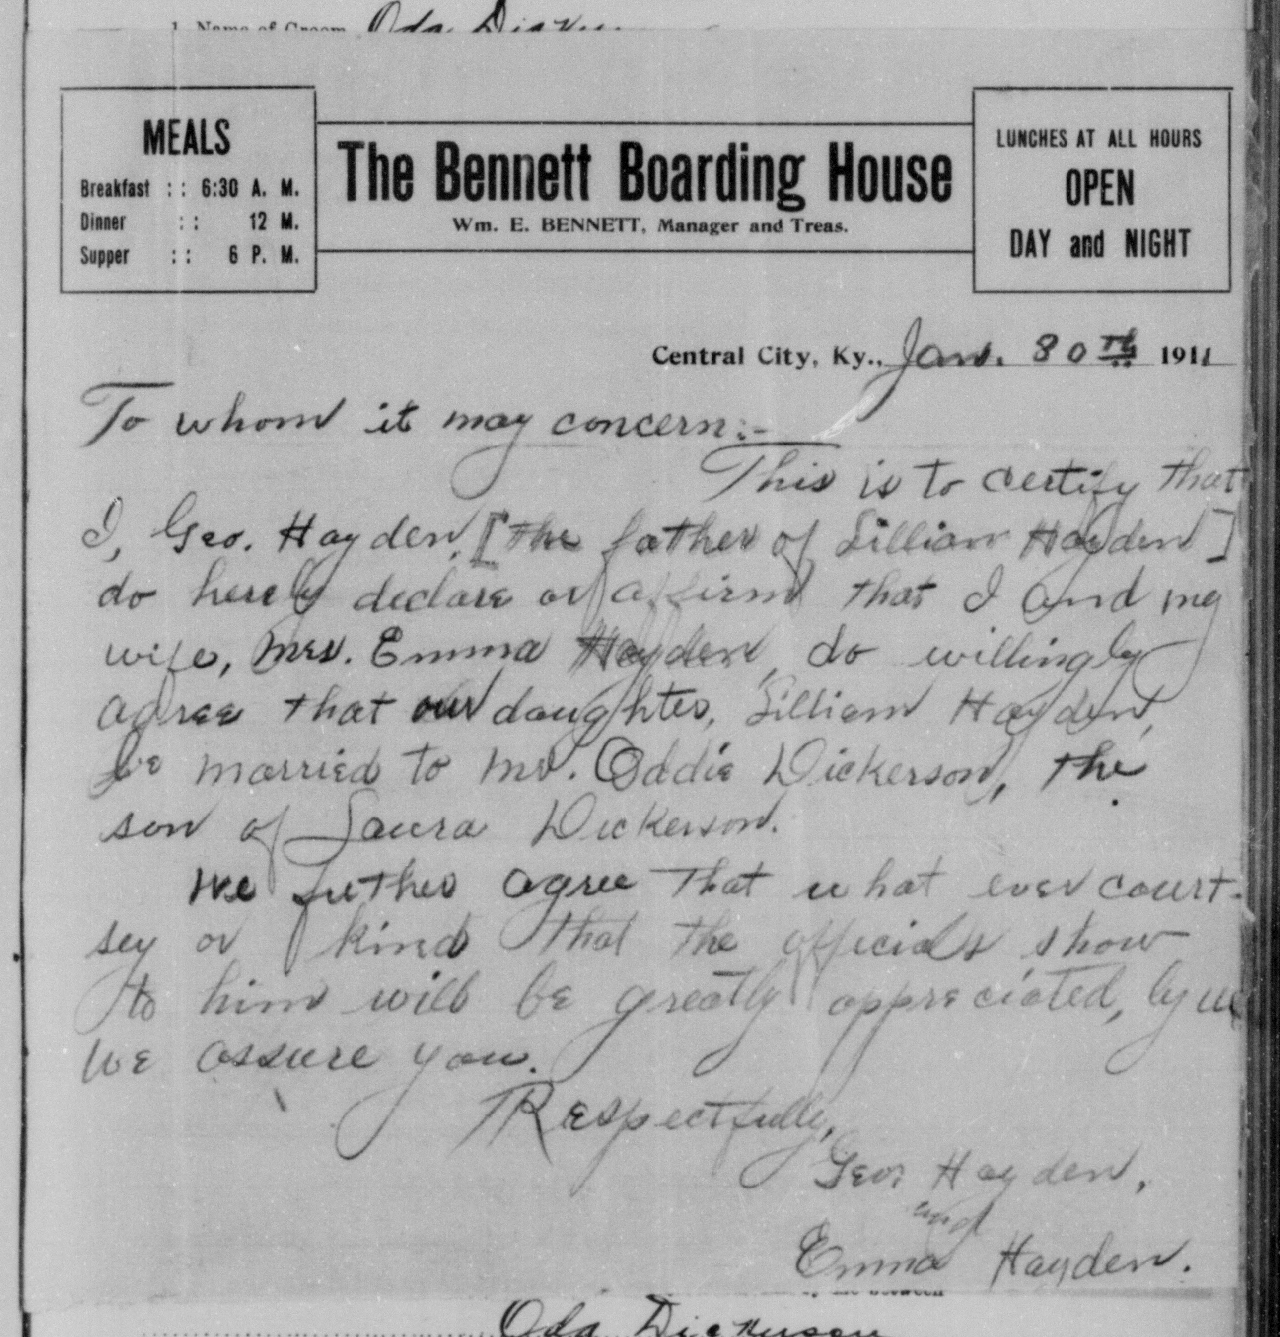 1. Name of Groom Oda Dicker
MEALS
Breakfast : : 6:30 A. M.
Dinner : : 12 M.
Supper : : 6 P. M.
The Bennett Boarding House
Wm. E. BENNETT, Manager and Treas.
LUNCHES AT ALL HOURS
OPEN
DAY and NIGHT
Central City, Ky., Jan. 30th 1911
To whom it may concern:-
This is to certify that
I, Geo. Hayden, [the father of Lillian Hayden]
do herely declare or affirm that I and my
wife, Mrs. Emma Hayden, do willingly
agree that our daughter, Lilliam Hayden,
be married to Mr. Oddie Dickerson, the
son of Laura Dickerson.
We futher agree that what ever court-
sey or kind that the officials show
to him will be greatly appreciated, by us
we assure you.
Respectfully,
Geo. Hayden,
and
Emma Hayden.
between
Oda Dickerson